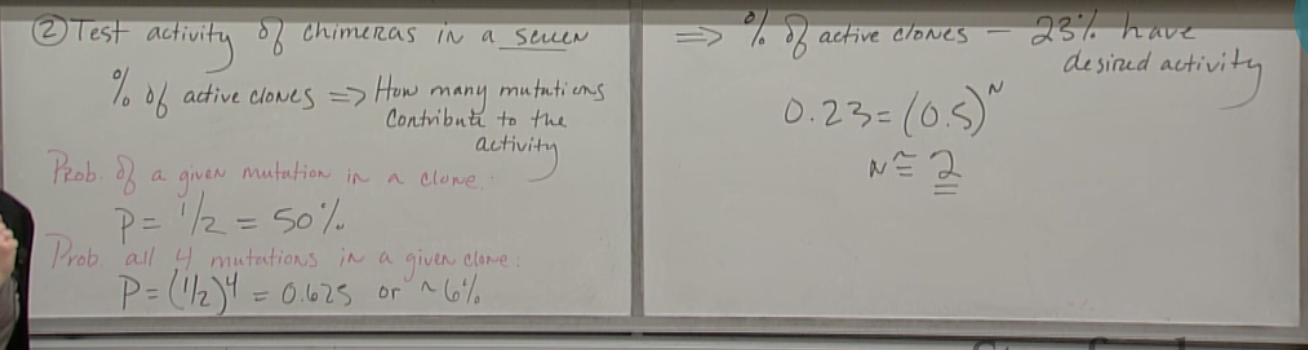 ② Test activity of chimeras in a screen
% of active clones => How many mutations
contribute to the
activity
Prob. of a given mutation in a clone:
P = 1/2 = 50%
Prob. all 4 mutations in a given clone:
P = (1/2)^4 = 0.625 or ~6%
=> % of active clones – 23% have
desired activity
0.23 = (0.5)^N
N ≅ 2